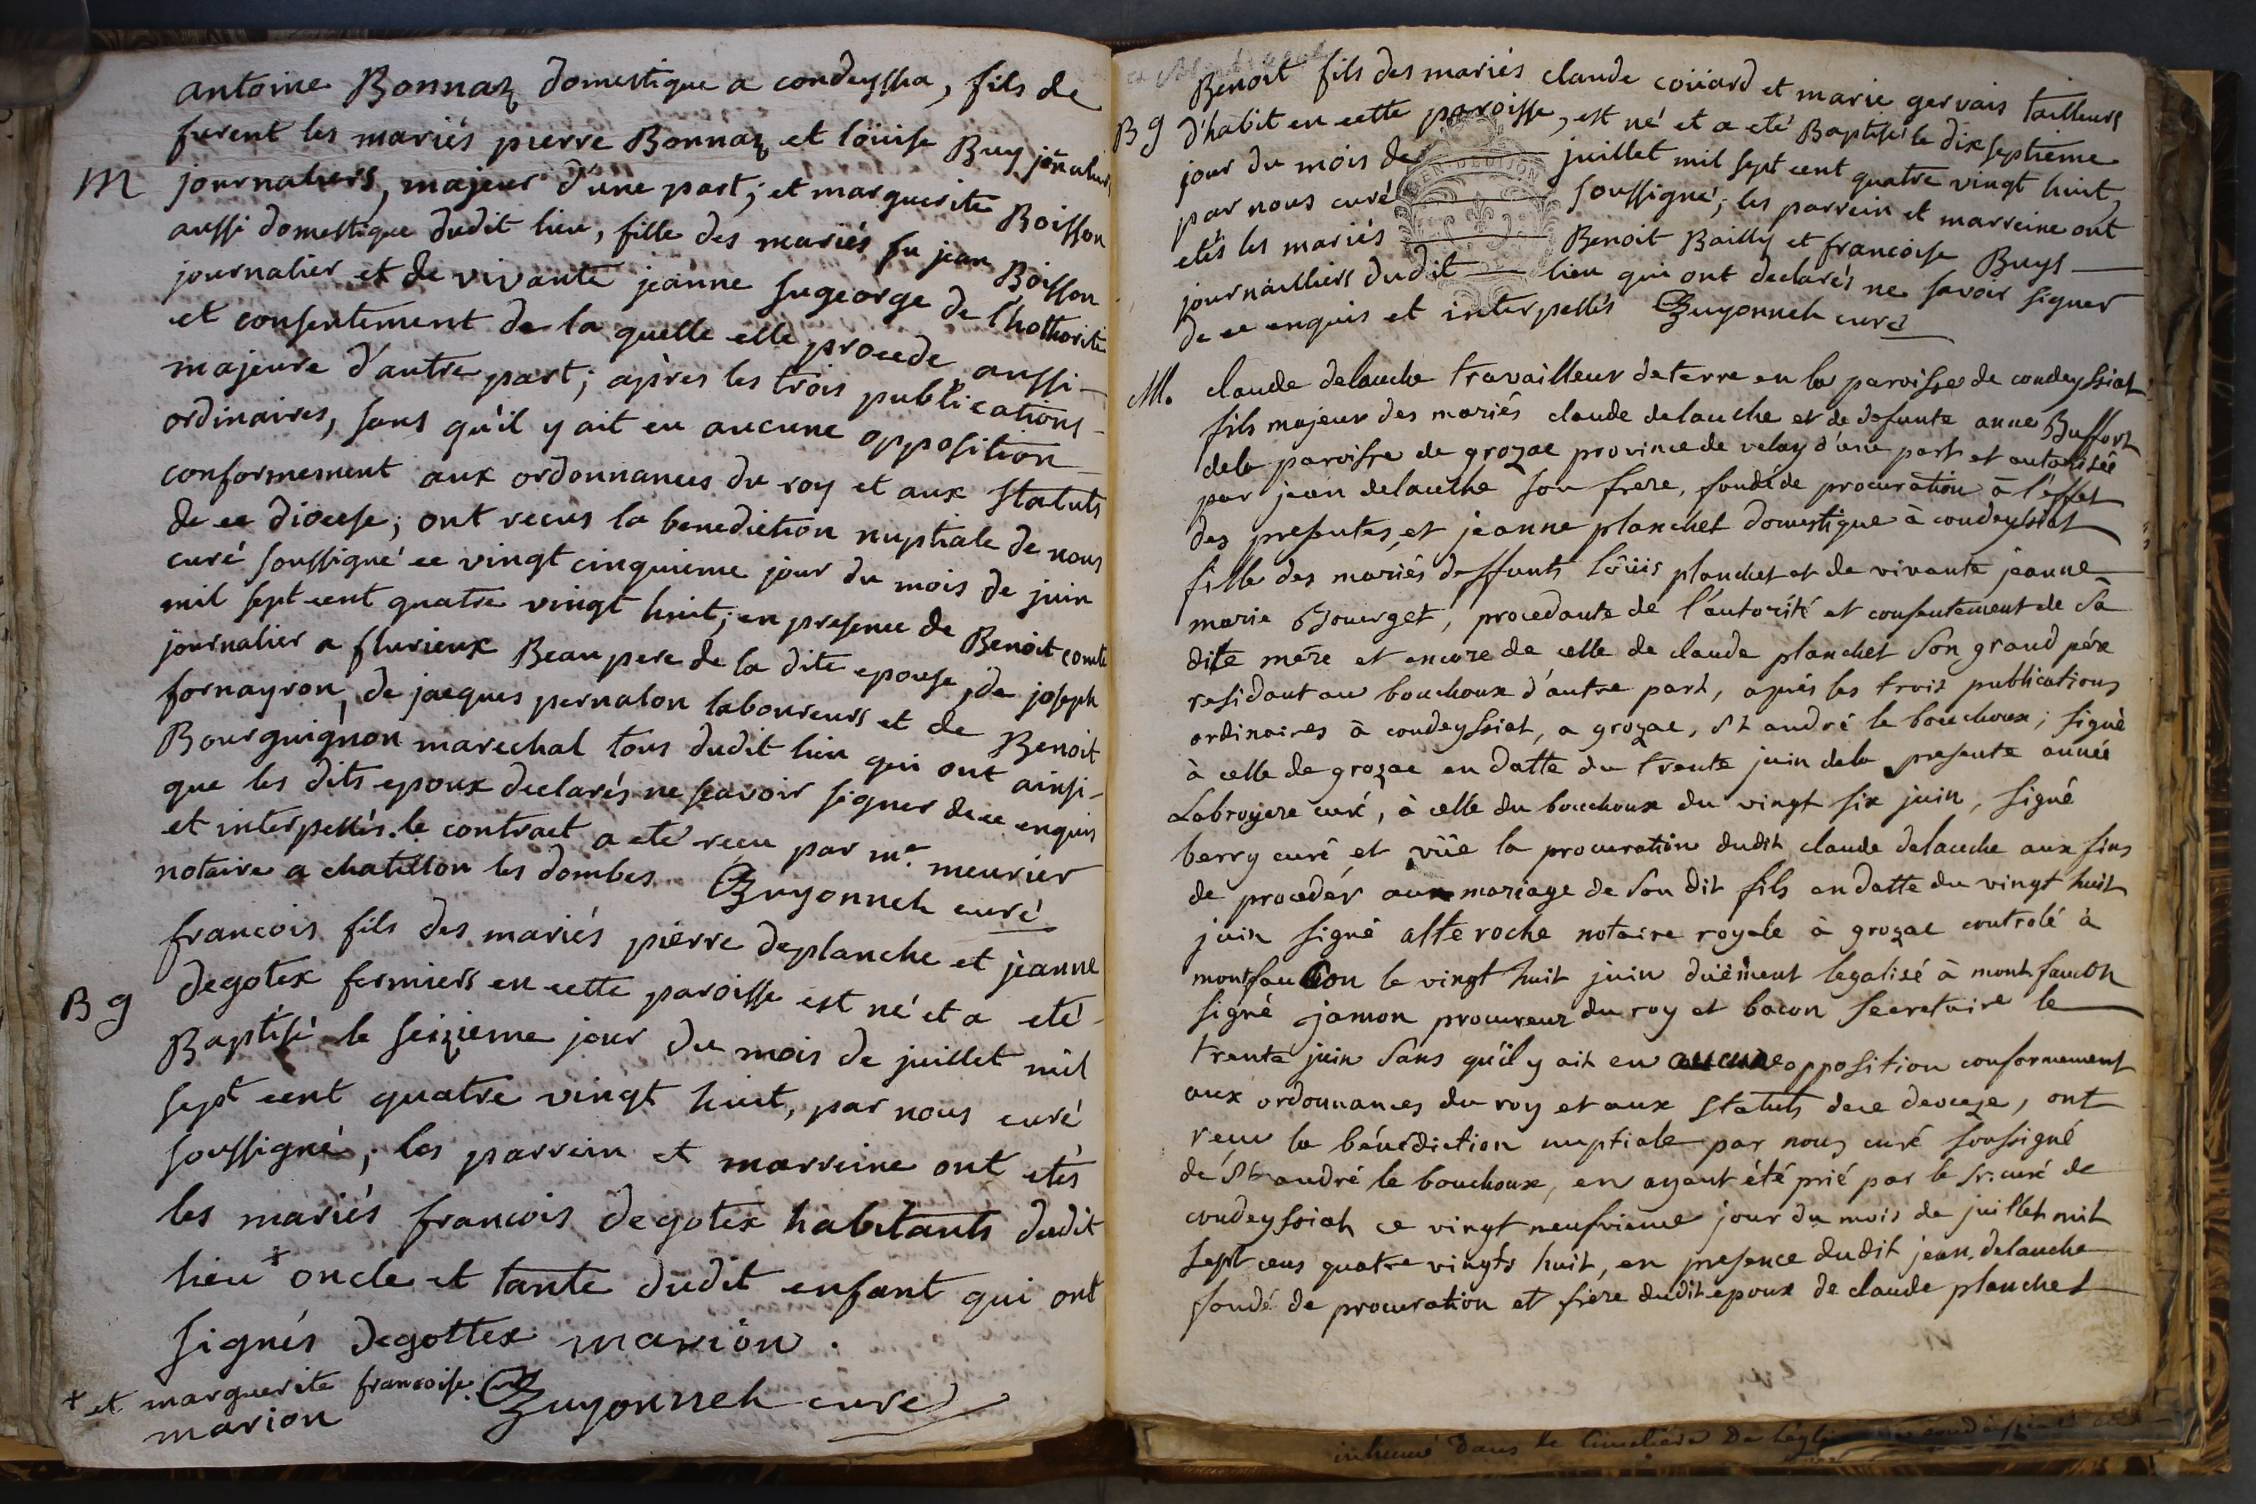 antoine Bonnaz domestique a condeyssia, fils de
furent les mariés pierre Bonnaz et loüise Buy
M journaliers, majeur d'une part; et marguerite Boisson
aussi domestique dudit lieu, fille des mariés fu jean Boisson
journalier et de vivante jeanne fugeorge de l'hothorité
et consentement de la quelle elle procede aussi
majeure d'autre part; après les trois publications
ordinaires, sans qu'il y ait eu aucune opposition
conformement aux ordonnances du roy et aux statuts
de ce diocese; ont recus la benediction nuptiale de nous
curé soussigné ce vingt cinquieme jour du mois de juin
mil sept cent quatre vingt huit; en presence de Benoit comte
journalier a flurieux Beau pere de la dite epouse, de joseph
fornayron, de jacques pernalon laboureurs et de Benoit
Bourguignon marechal tous dudit lieu qui ont ainsi
que les dits epoux declarés ne scavoir signer de ce enquis
et interpellés. le contract a eté recu par me. meurier
notaire a chatillon les dombes Guyonneh curé
francois fils des mariés pierre deplanche et jeanne
Bg degotex fermiers en cette paroisse est né et a eté
Baptisé le seizieme jour du mois de juillet mil
sept cent quatre vingt huit, par nous curé
soussigné; les parrein et marreine ont etés
les mariés francois degotex habitants dudit
lieu + oncle et tante dudit enfant qui ont
signés degottex marion.
+ et marguerite francoise
marion Guyonneh curé
Benoit fils des mariés claude coüard et marie gervais tailleurs
Bg d'habit en cette paroisse, est né et a eté Baptisé le dixseptieme
jour du mois de juillet mil sept cent quatre vingt huit,
par nous curé soussigné; les parrein et marreine ont
etés les mariés Benoit Bailly et francoise Buys
journailliers dudit lieu qui ont declarés ne savoir signer
de ce enquis et interpellés Guyonneh curé
M. claude delauche travailleur de terre en la paroisse de condeyssiat
fils majeur des mariés claude delauche et de defunte anne Buffort
dela paroisse de grozac province de velay d'une part et autorisée
par jean delauche son frere, fondé de procuration à l'effet
des presentes, et jeanne planchet domestique à condeyssiat
fille des mariés deffunts loüis planchet et de vivante jeanne
marie Bouerget, procedante de l'autorité et consentement de sa
dite mére et encore de celle de claude planchet son grand pére
residant au bouchoux d'autre part, aprés les trois publications
ordinaires à condeyssiat, a grozac, St andré le bouchoux; signé
à celle de grozac en datte du trente juin dela presente année
Labroyere curé, à celle du bouchoux du vingt six juin, signé
berry curé, et vüe la procuration dudit claude delauche aux fins
de procedér aux mariage de son dit fils en datte du vingt huit
juin signé alteroche notaire royale à grozac controlé à
montfaucon le vingt huit juin düement legalisé à montfaucon
signé jamon procureur du roy et bacon secretaire le
trente juin sans qu'il y ait eu aucune opposition conformement
aux ordonnances du roy et aux statuts de ce deoceze, ont
recu la bénédiction nuptiale par nous curé soussigné
de St andré le bouchoux, en ayant été prié par le sr. curé de
condeyssiat ce vingt neufvieme jour du mois de juillet mil
sept cens quatre vingts huit, en presence dudit jean delauche
fondé de procuration et frere dudit epoux de claude planchet
inhumé dans le cimetiere De L'eglise